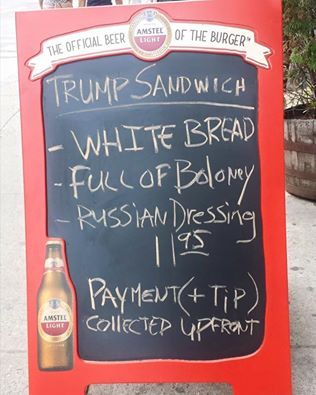 THE OFFICIAL BEER AMSTEL LIGHT OF THE BURGER™
TRUMP SANDWICH
- WHITE BREAD
- FULL OF Boloney
- RUSSIAN Dressing
11 95
PAYMENT (+ TIP)
COLLECTED UPFRONT
AMSTEL
LIGHT